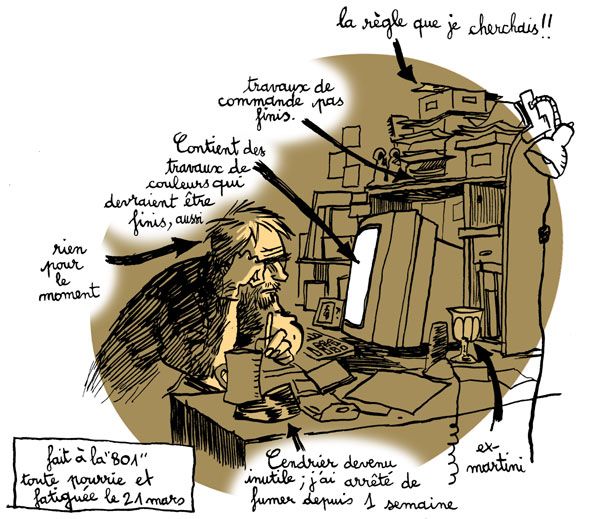 la règle que je cherchais!!
travaux de
commande pas
finis.
Contient des
travaux de
couleurs qui
devraient être
finis, aussi
rien
pour
le
moment
ex-
martini
Cendrier devenu
inutile ; j'ai arrêté de
fumer depuis 1 semaine
fait à la "801"
toute pourrie et
fatiguée le 21 mars